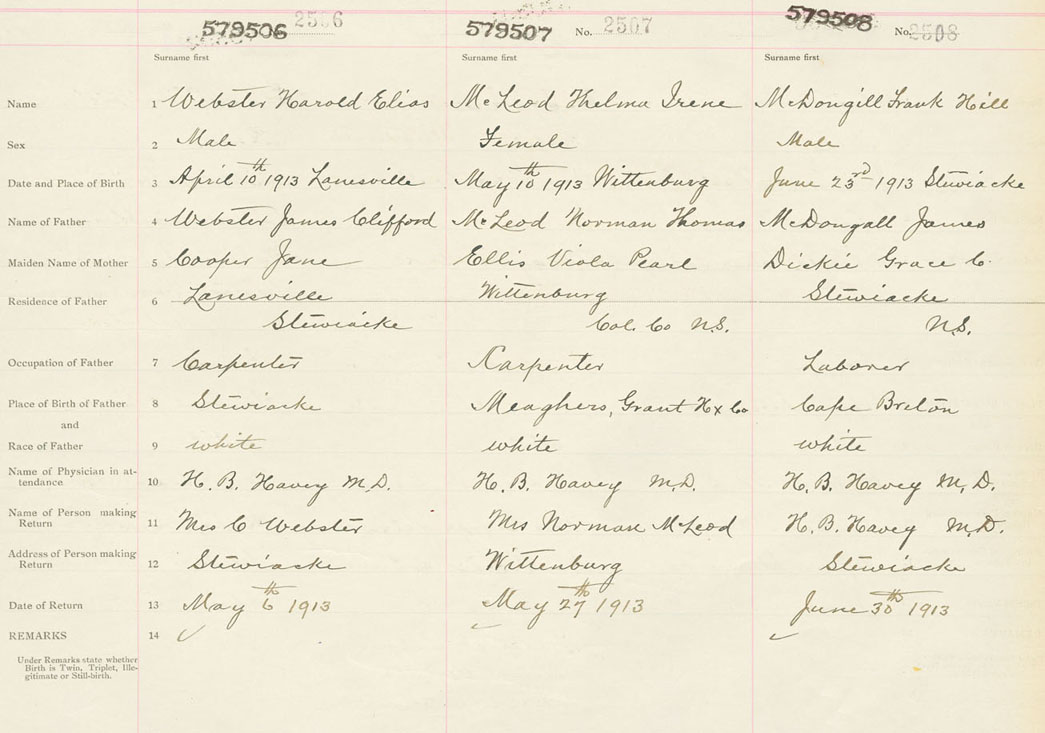 579506 2506 579507 No. 2507 579508 No. 2508
Surname first Surname first Surname first
Name 1 Webster Harold Elias McLeod Thelma Irene McDongill Frank Hill
Sex 2 Male Female Male
Date and Place of Birth 3 April 10th 1913 Lanesville May 10th 1913 Wittenburg June 23rd 1913 Stewiacke
Name of Father 4 Webster James Clifford McLeod Norman Thomas McDougall James
Maiden Name of Mother 5 Cooper Jane Ellis Viola Pearl Dickie Grace C.
Residence of Father 6 Lanesville Wittenburg Stewiacke
Stewiacke Col. Co N.S. N.S.
Occupation of Father 7 Carpenter Carpenter Laborer
Place of Birth of Father 8 Stewiacke Meaghers, Grant Hx Co Cape Breton
and
Race of Father 9 white white white
Name of Physician in at-
tendance 10 H. B. Havey M.D. H. B. Havey M.D. H. B. Havey M.D.
Name of Person making
Return 11 Mrs C Webster Mrs Norman McLeod H. B. Havey M.D.
Address of Person making
Return 12 Stewiacke Wittenburg Stewiacke
Date of Return 13 May 6th 1913 May 27th 1913 June 30th 1913
REMARKS 14
Under Remarks state whether
Birth is Twin, Triplet, Ille-
gitimate or Still-birth.